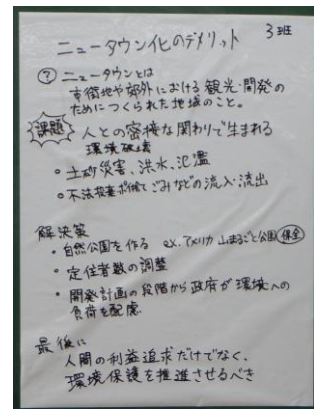 3班
ニュータウン化のデメリット
? ニュータウンとは
市街地や郊外における観光・開発の
ためにつくられた地域のこと。
課題 人との密接な関わりで生まれる
環境破壊
○土砂災害、洪水、氾濫
○不法投棄 ポイ捨てごみなどの流入・流出
解決策
・自然公園を作る ex.アメリカ 山まるごと公園 保全
・定住者数の調整
・開発計画の段階から政府が環境への
負荷を配慮
最後に
人間の利益追求だけでなく、
環境保護を推進させるべき